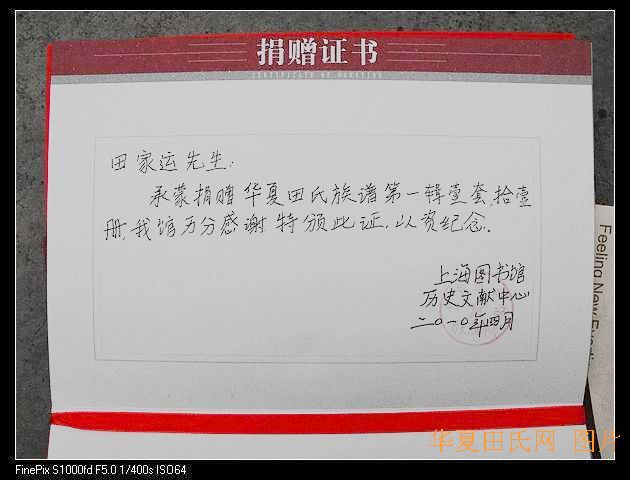 捐赠证书
CERTIFICATE OF DONATION
田家运先生:
承蒙捐赠华夏田氏族谱第一辑壹套,拾壹
册,我馆万分感谢.特颁此证,以资纪念。
上海图书馆
历史文献中心
二〇一〇年四月
Feeling New
华夏田氏网 图片
FinePix S1000fd F5.0 1/400s ISO64